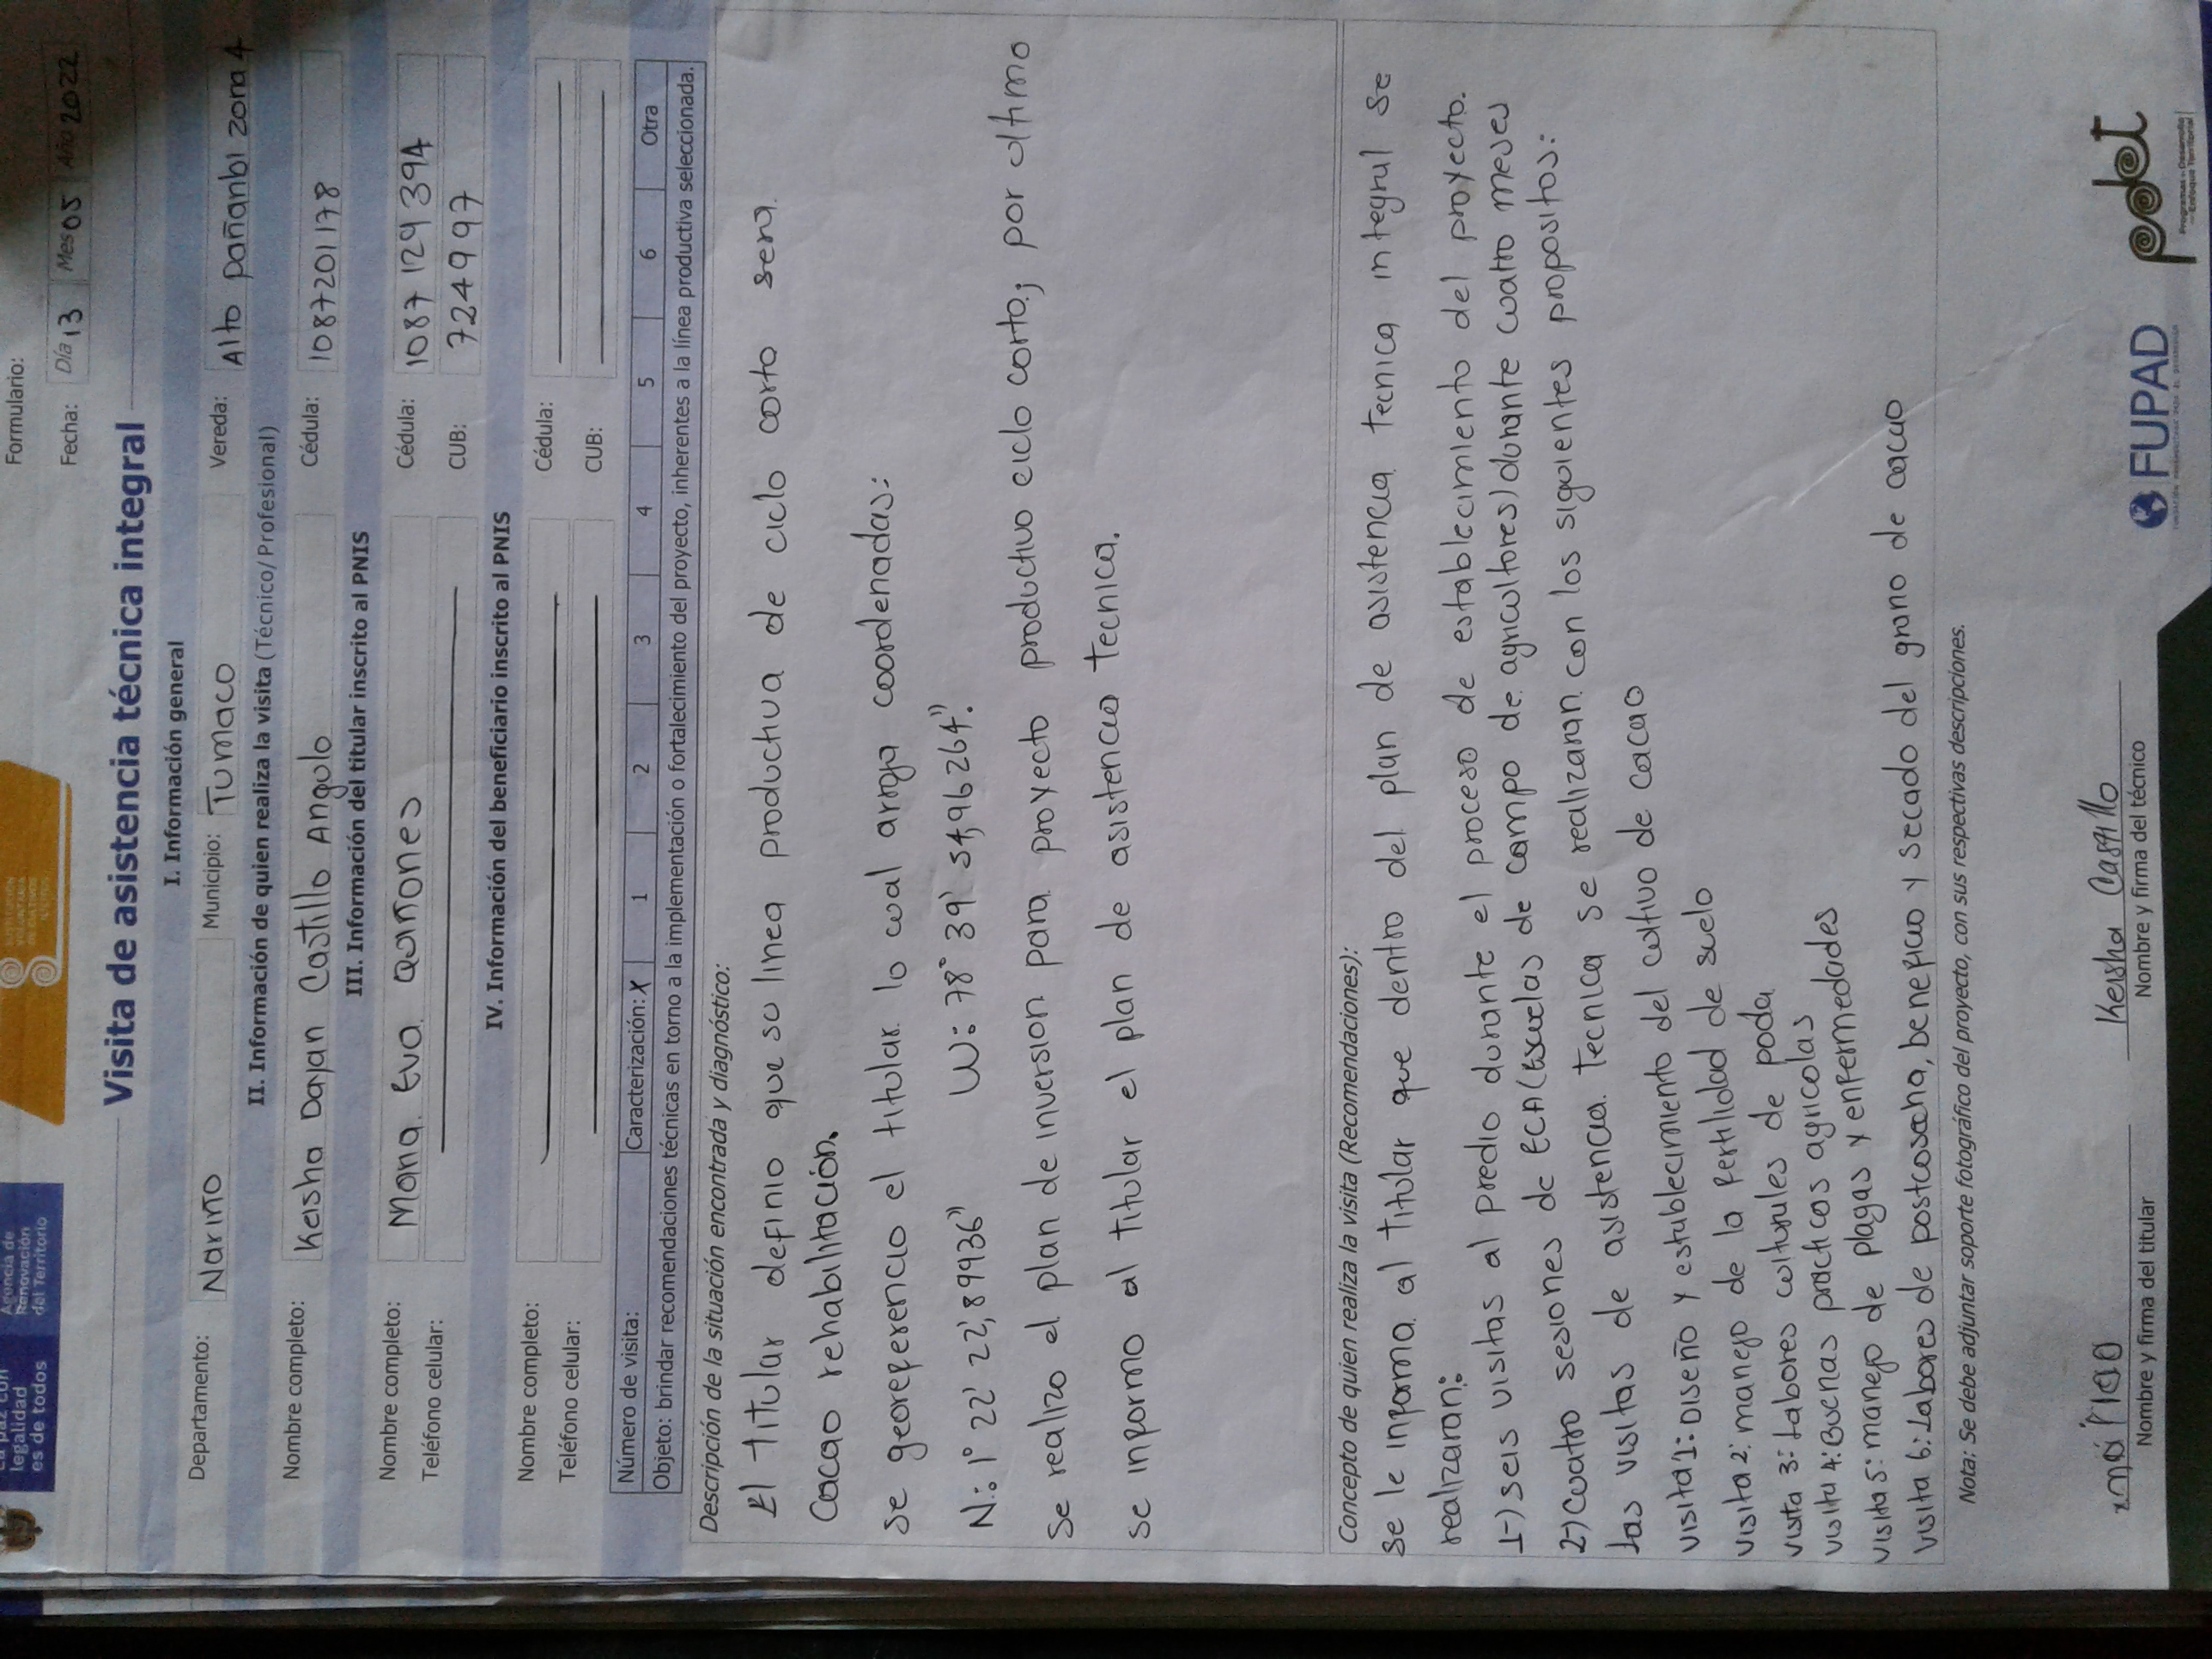 La paz con
legalidad
es de todos
Agencia de
Renovación
del Territorio
Formulario:
Fecha: Día 13 Mes 05 Año 2022
Visita de asistencia técnica integral
I. Información general
Departamento: Nariño Municipio: Tumaco Vereda: Alto pañanbi zona 4
II. Información de quien realiza la visita (Técnico/ Profesional)
Nombre completo: Keisha Dayan Castillo Angulo Cédula: 1087201178
III. Información del titular inscrito al PNIS
Nombre completo: Maria Eva Quiñones Cédula: 1087 129 394
Teléfono celular: CUB: 724997
IV. Información del beneficiario inscrito al PNIS
Nombre completo: Cédula:
Teléfono celular: CUB:
Número de visita: Caracterización: X 1 2 3 4 5 6 Otra
Objeto: brindar recomendaciones técnicas en torno a la implementación o fortalecimiento del proyecto, inherentes a la línea productiva seleccionada.
Descripción de la situación encontrada y diagnóstico:
El titular definio que su linea productiva de ciclo corto sera
Cacao rehabilitación.
se georeferencio el titular lo cual arroja coordenadas:
N: 1° 22' 22,89936" W: 78° 39' 54,96264".
Se realizo el plan de inversion para proyecto productivo ciclo corto; por ultimo
se informo al titular el plan de asistencia tecnica.
Concepto de quien realiza la visita (Recomendaciones):
se le informa al titular que dentro del plan de asistencia tecnica integral se
realizaran:
1-) seis visitas al predio durante el proceso de establecimiento del proyecto.
2-) cuatro sesiones de ECA (Escuelas de campo de agricultores) durante cuatro meses
las visitas de asistencia tecnica se realizaran con los siguientes propositos:
visita 1: Diseño y establecimiento del cultivo de cacao
visita 2: manejo de la fertilidad de suelo
visita 3: Labores culturales de poda
visita 4: Buenas practicas agricolas
visita 5: manejo de plagas y enfermedades
visita 6: Labores de postcosecha, beneficio y secado del grano de cacao
Nota: Se debe adjuntar soporte fotográfico del proyecto, con sus respectivas descripciones.
Keisha Castillo
Nombre y firma del titular Nombre y firma del técnico
FUPAD
pdet
Programas de Desarrollo
con Enfoque Territorial